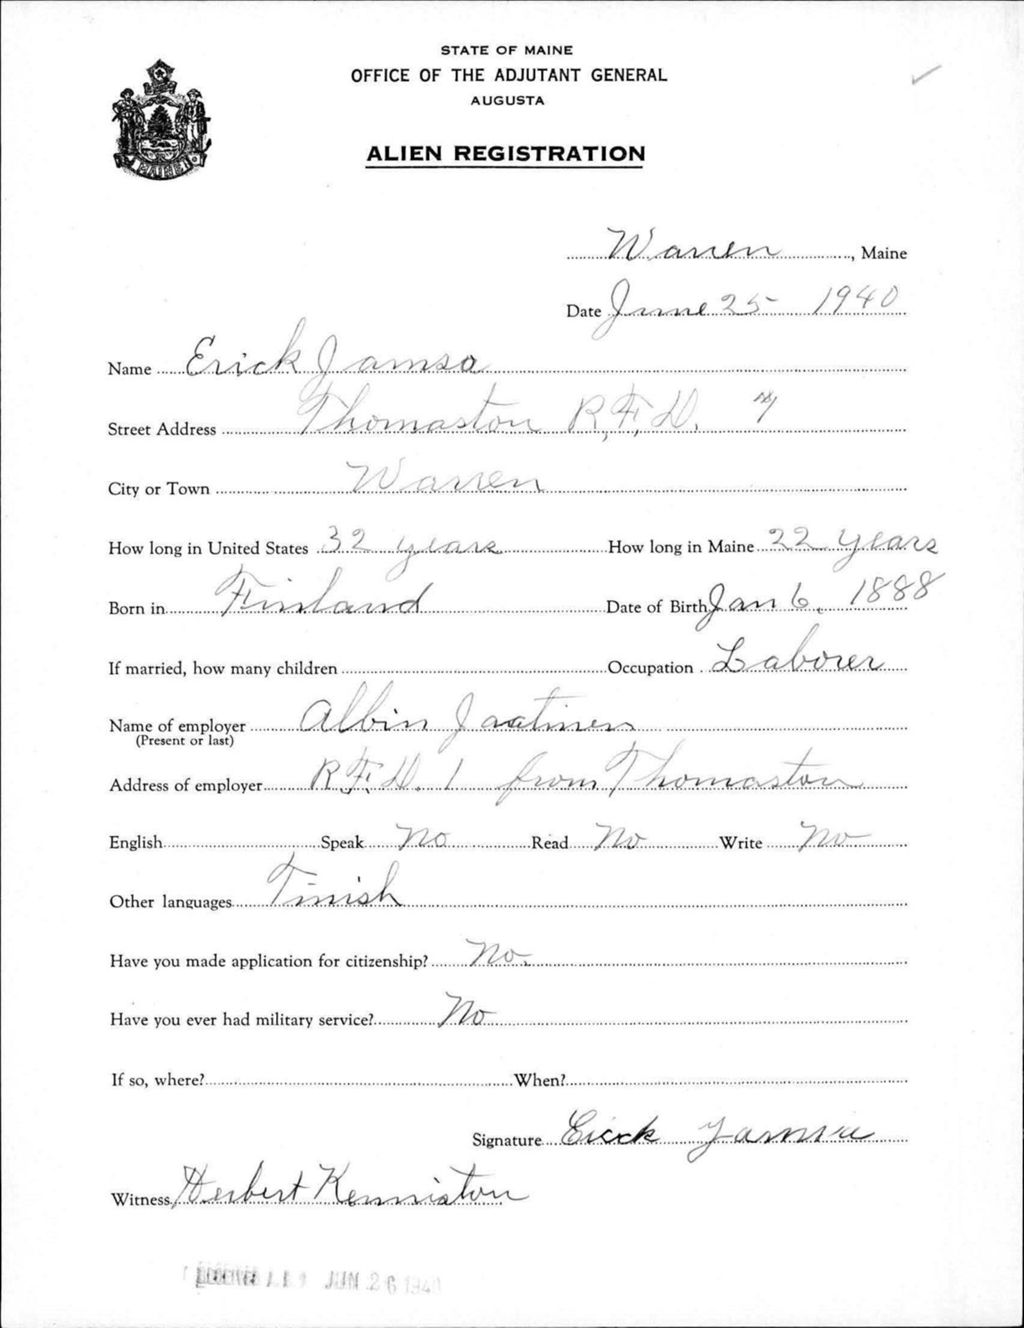 STATE OF MAINE
OFFICE OF THE ADJUTANT GENERAL
AUGUSTA
ALIEN REGISTRATION
MAINE
Warren, Maine
Date June 25 1940
Name Erick Jamsa
Street Address Thomaston R.F.D.
City or Town Warren
How long in United States 32 years How long in Maine 22 years
Born in Finland Date of Birth Jan 6, 1888
If married, how many children Occupation Laborer
Name of employer Albin Jaatinen
(Present or last)
Address of employer R.F.D. 1 from Thomaston
English Speak No Read No Write No
Other languages Finish
Have you made application for citizenship? No.
Have you ever had military service? No
If so, where? When?
Signature Erick Jamsa
Witness Herbert Kenniston
JUN 26 1940